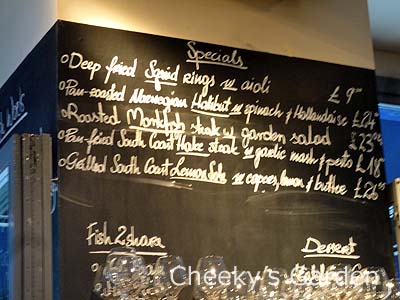 Specials
Deep fried Squid rings w aioli £9
Pan-roasted Norwegian Halibut w spinach & Hollandaise £24
Roasted Monkfish steak w garden salad £23
Pan-fried South Coast Hake steak w garlic mash & pesto £18
Grilled South Coast Lemon Sole w capers, lemon & butter
Fish 2 share
Dessert
Cheeky's Garden